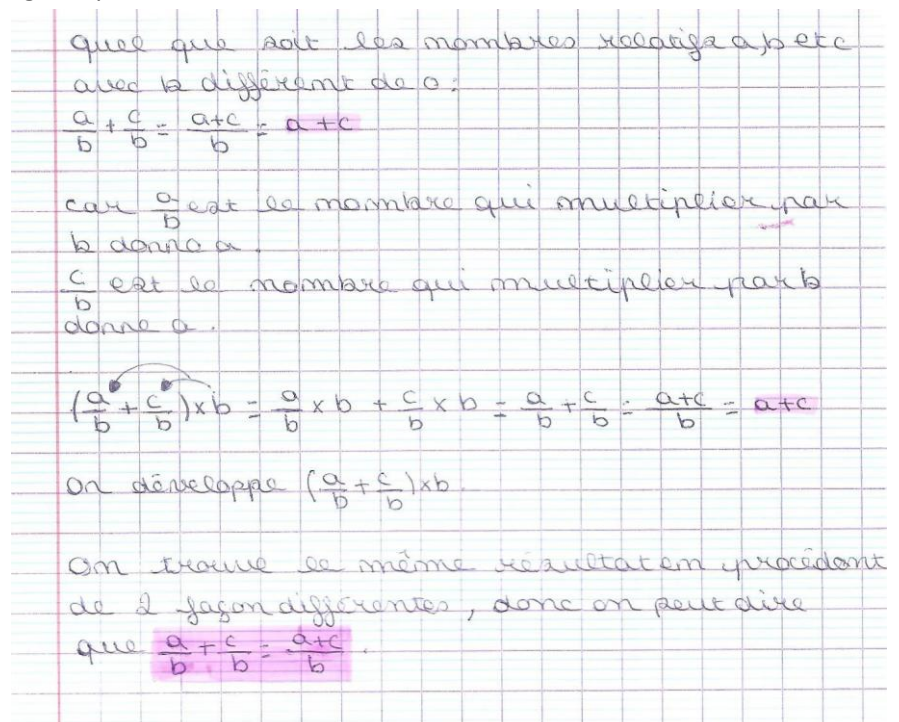 quel que soit les nombres relatifs a, b et c
avec b différent de 0 :
a/b + c/b = a+c/b = a + c
car a/b est le nombre qui multiplier par
b donne a.
c/b est le nombre qui multiplier par b
donne a.
(a/b + c/b) x b = a/b x b + c/b x b = a/b + c/b = a+c/b = a+c
on développe (a/b + c/b) x b.
On trouve le même résultat en procédant
de 2 façon différentes, donc on peut dire
que a/b + c/b = a+c/b.